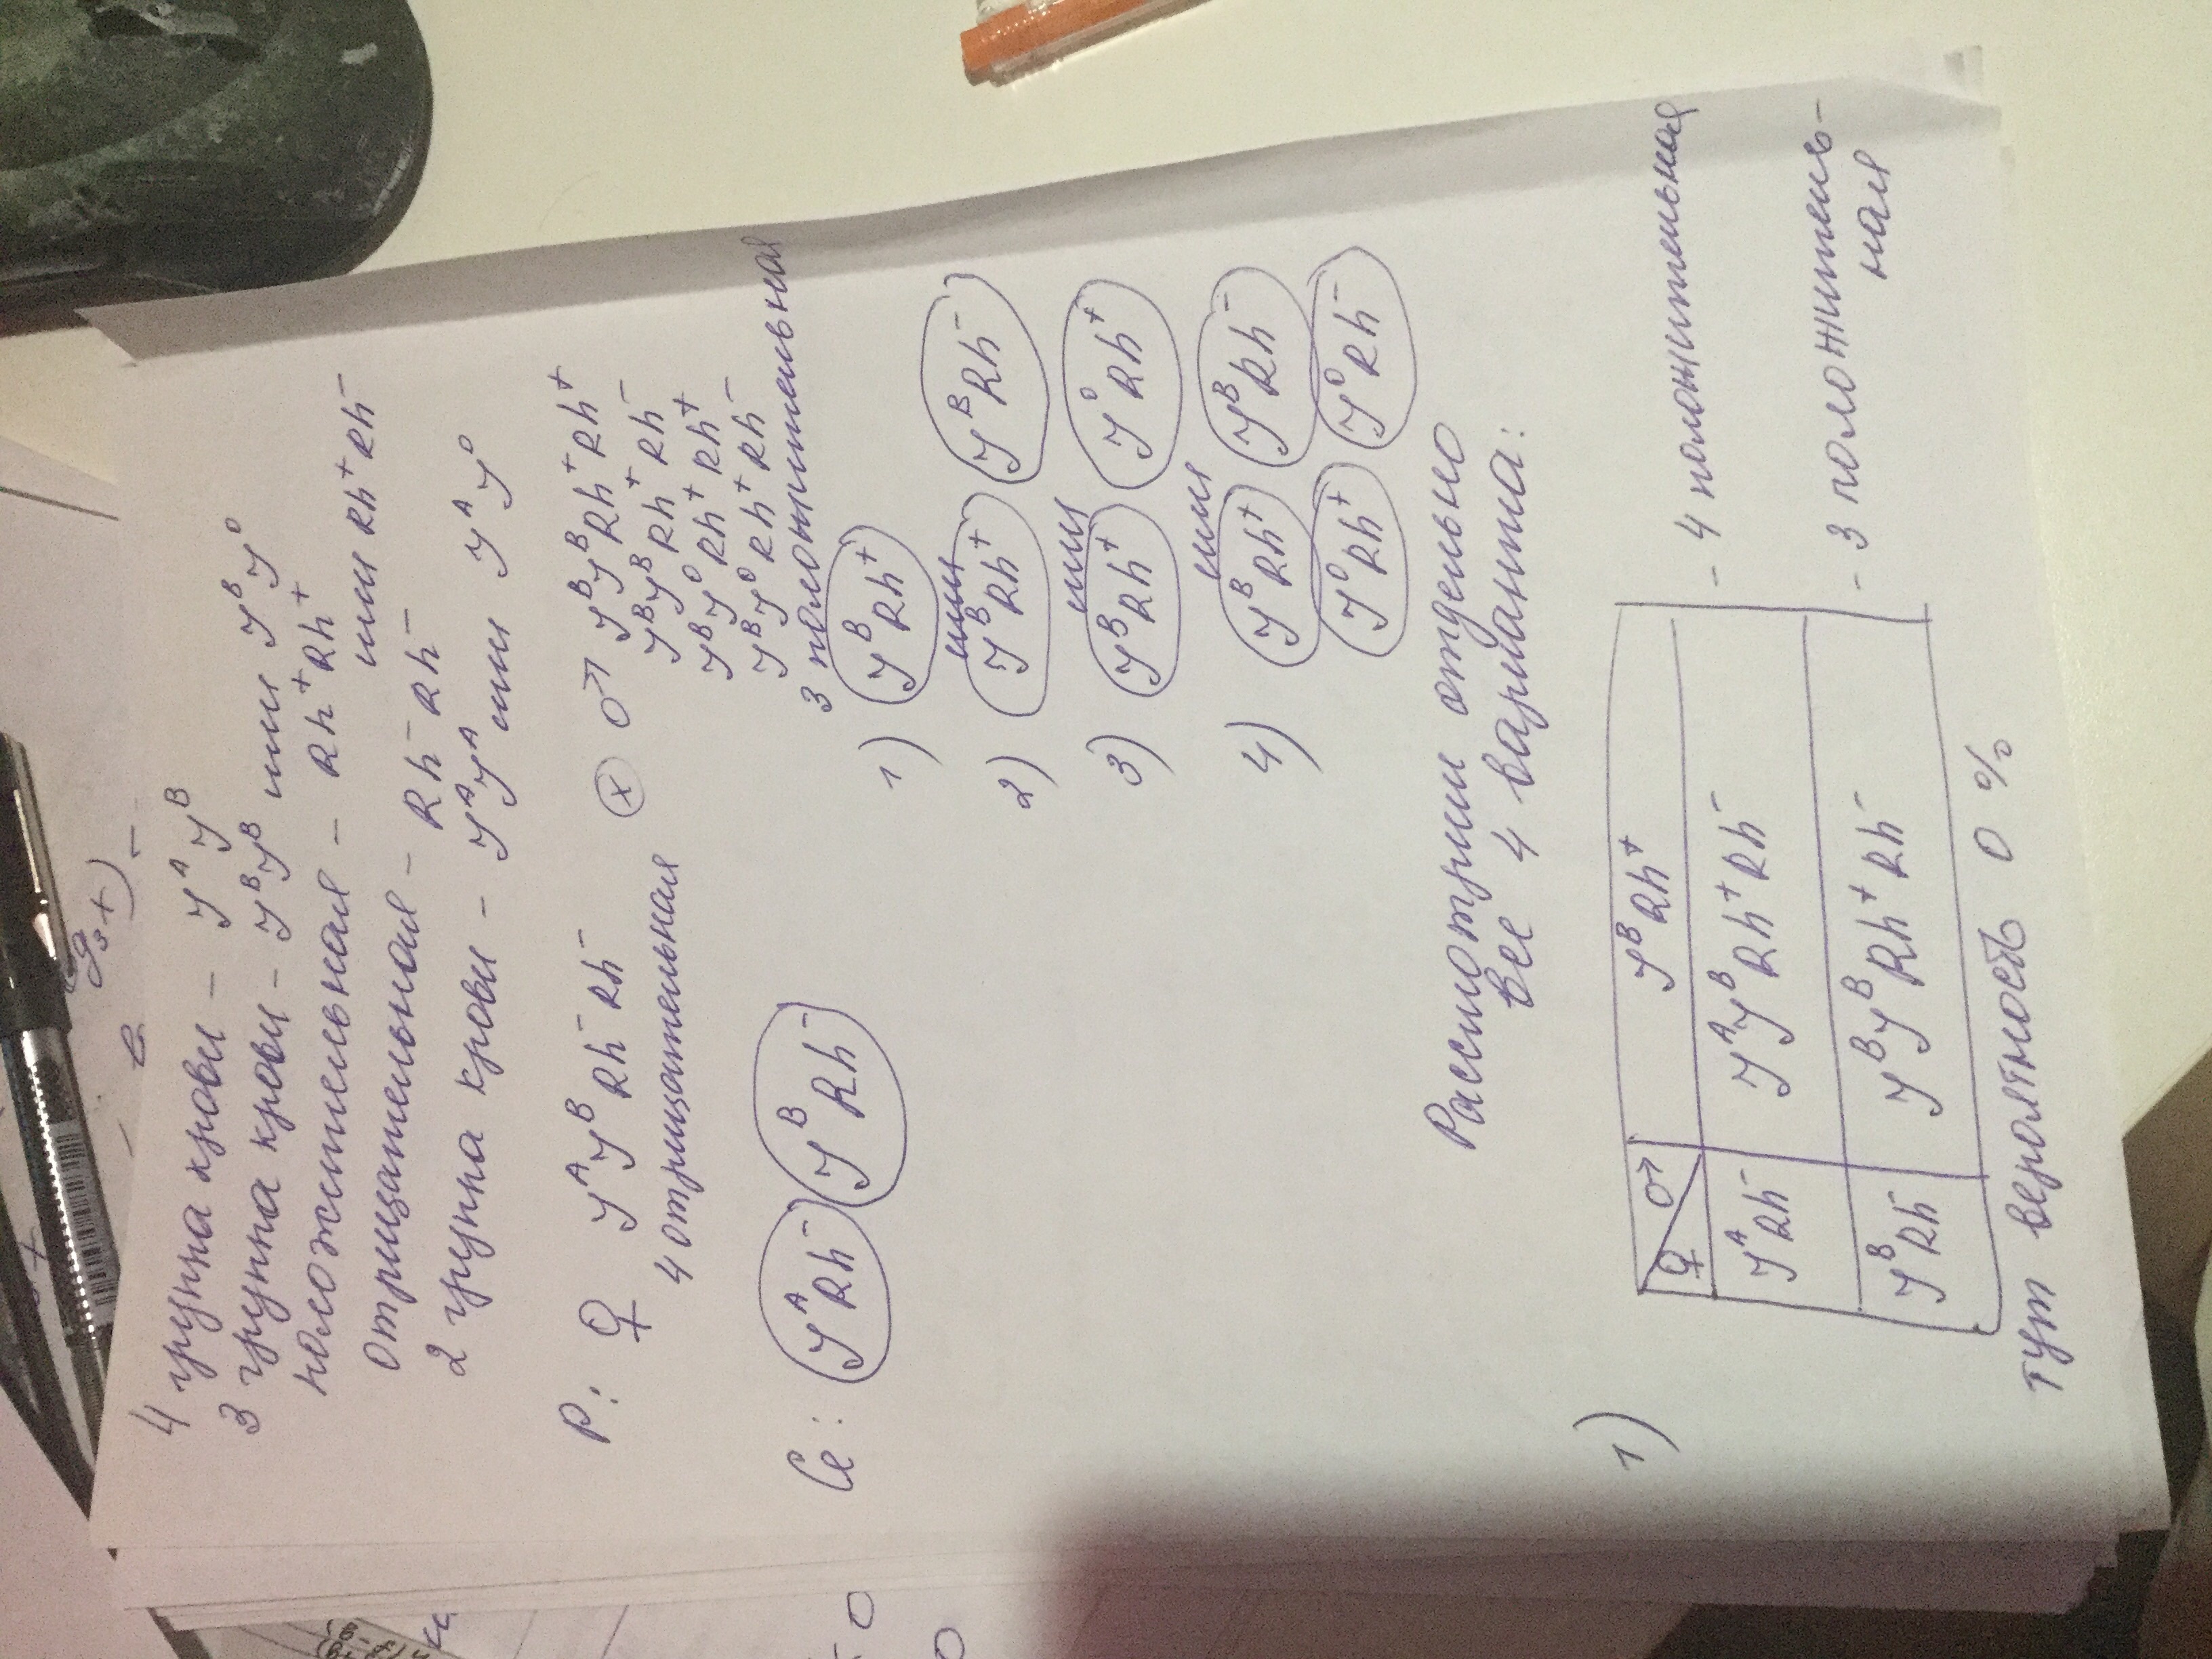 4 группа крови - J^A J^B
3 группа крови - J^B J^B или J^B J^0
положительная - Rh⁺Rh⁺
или Rh⁺Rh⁻
отрицательная - Rh⁻Rh⁻
2 группа крови - J^A J^A или J^A J^0
P: ♀ J^A J^B Rh⁻Rh⁻ ⊗ ♂ J^B J^B Rh⁺Rh⁺
J^B J^B Rh⁺Rh⁻
J^B J^0 Rh⁺Rh⁺
J^B J^0 Rh⁺Rh⁻
4 отрицательная
3 положительная
G: J^A Rh⁻ J^B Rh⁻
1) J^B Rh⁺
или
2) J^B Rh⁺ J^B Rh⁻
или
3) J^B Rh⁺ J^0 Rh⁺
или
4) J^B Rh⁺ J^B Rh⁻
J^0 Rh⁺ J^0 Rh⁻
Рассмотрим отдельно
все 4 варианта:
1)
♀ ♂ J^B Rh⁺
J^A Rh⁻ J^A J^B Rh⁺Rh⁻ - 4 положительная
J^B Rh⁻ J^B J^B Rh⁺Rh⁻ - 3 положитель-
ная
тут вероятность 0 %